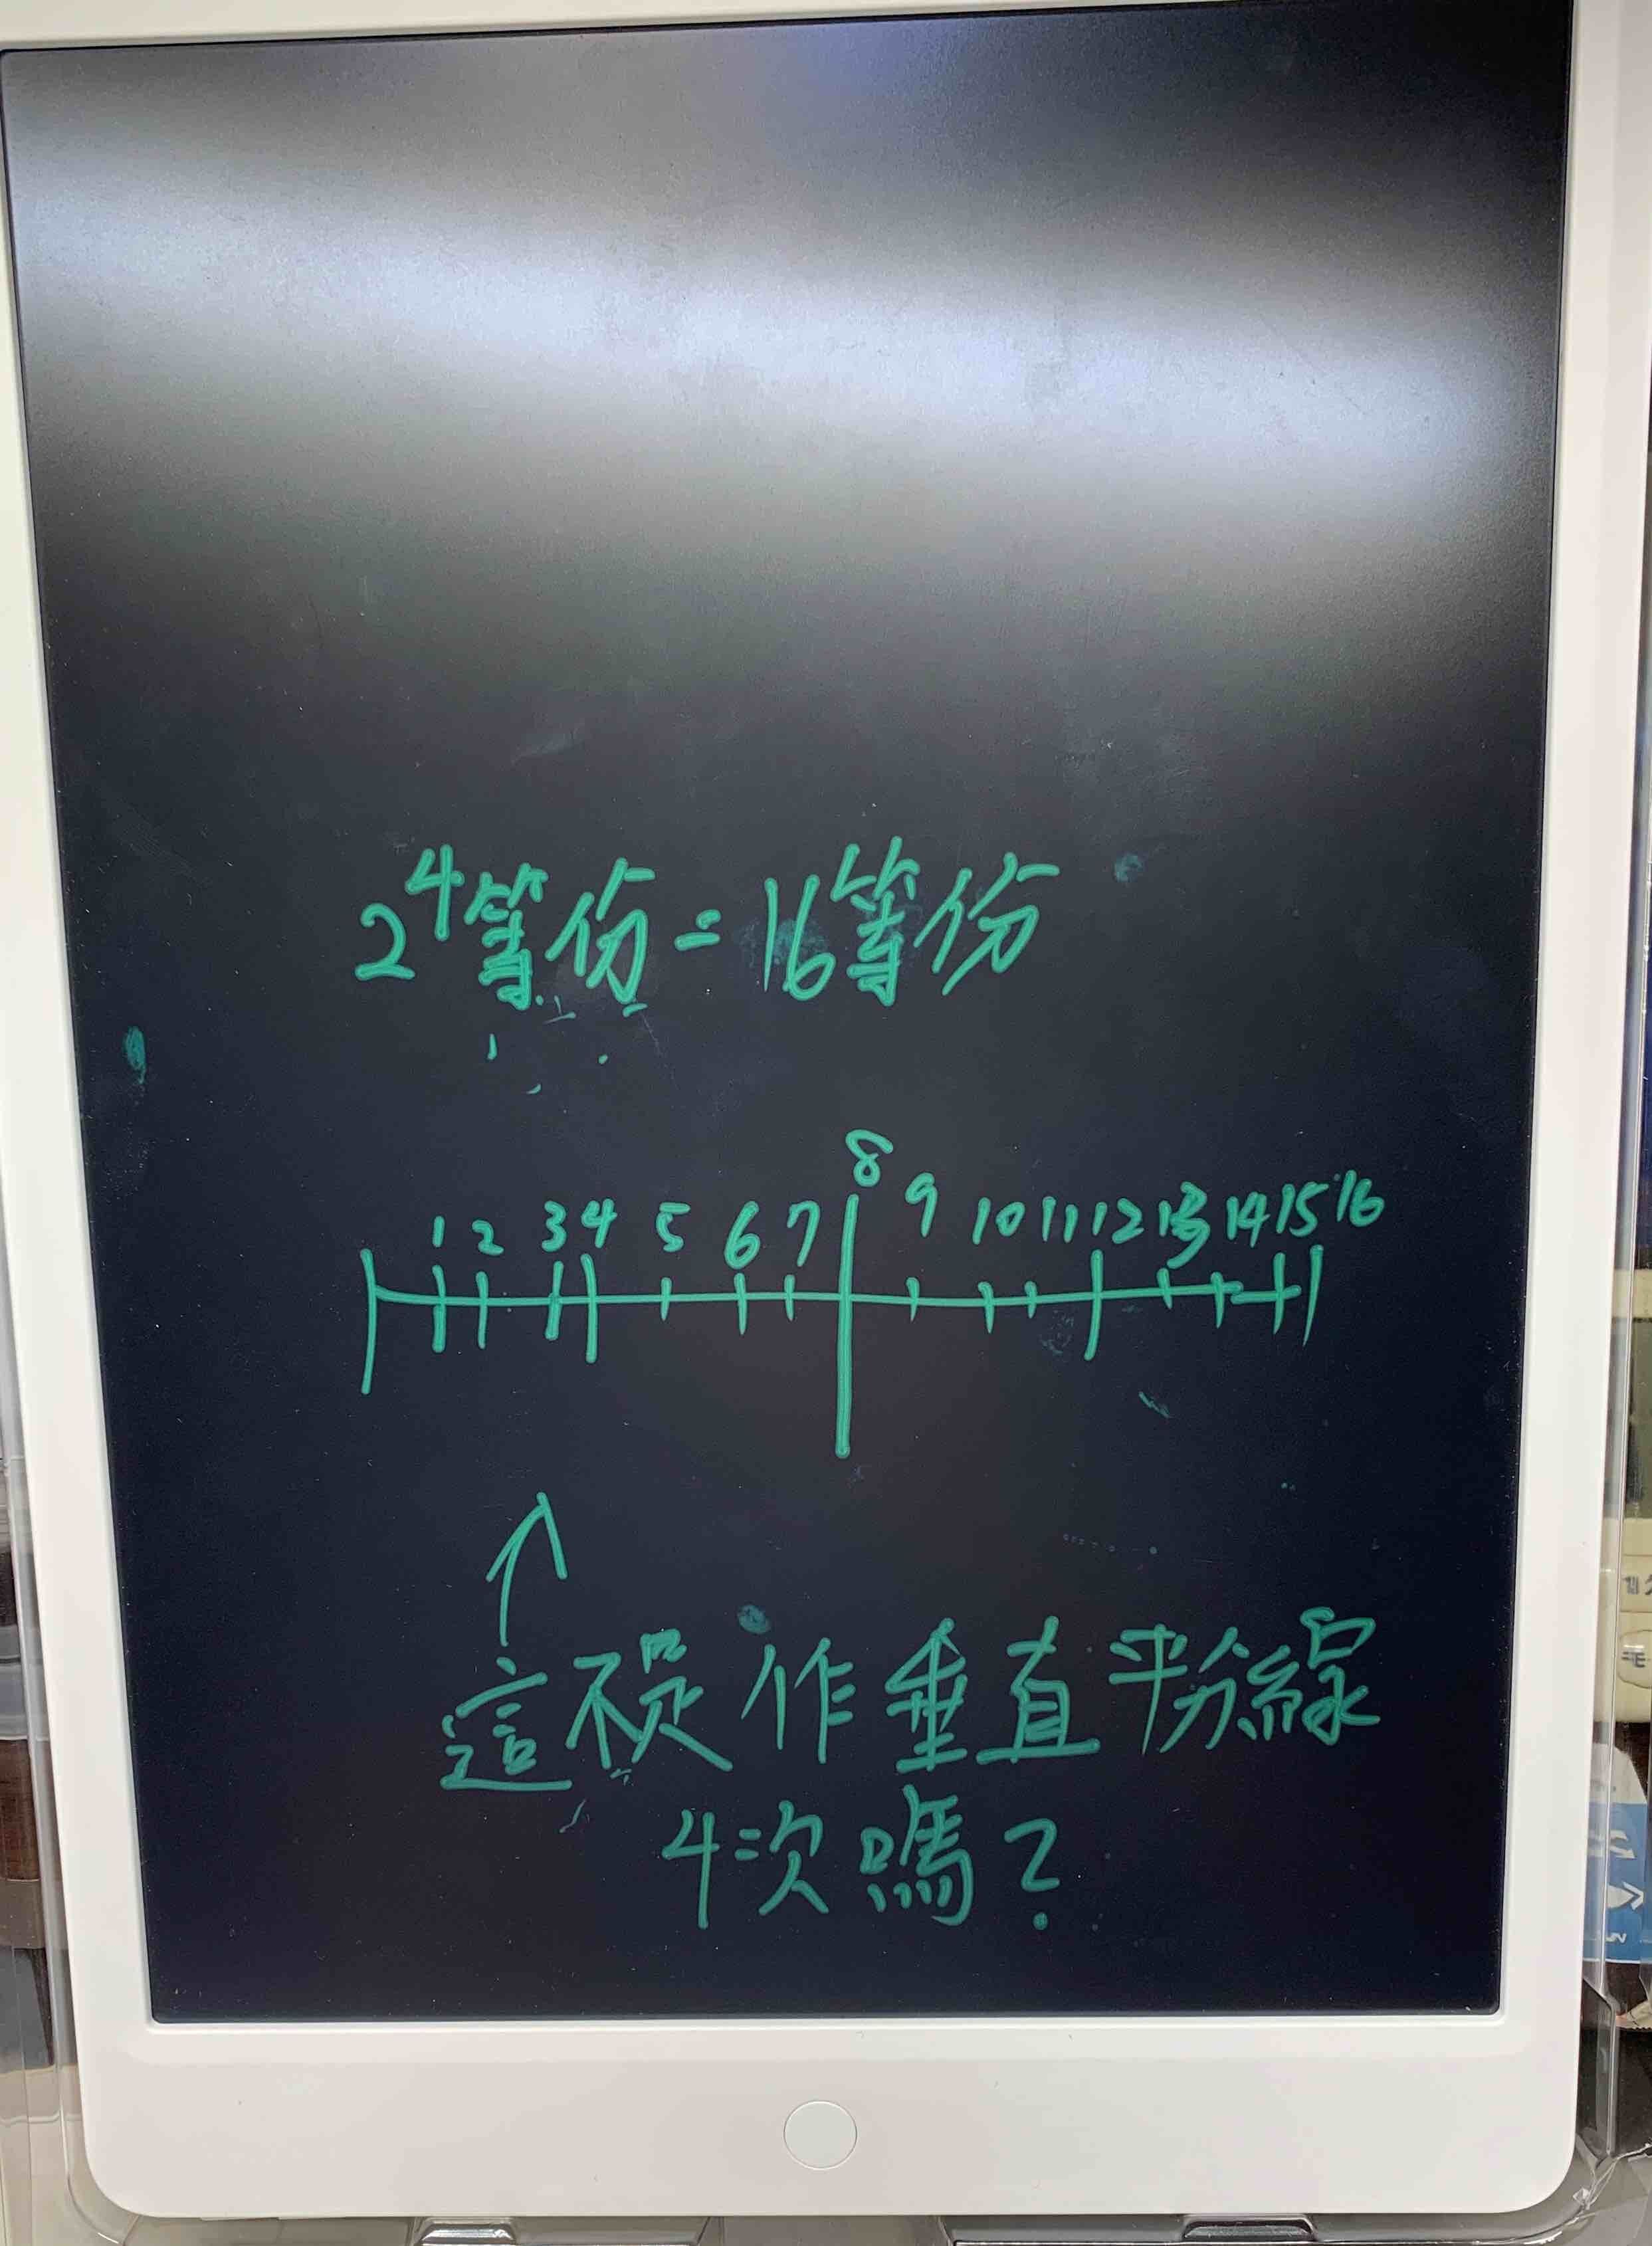 2⁴等份=16等份
1 2 3 4 5 6 7 8 9 10 11 12 13 14 15 16
這不是作垂直平分線
4次嗎?